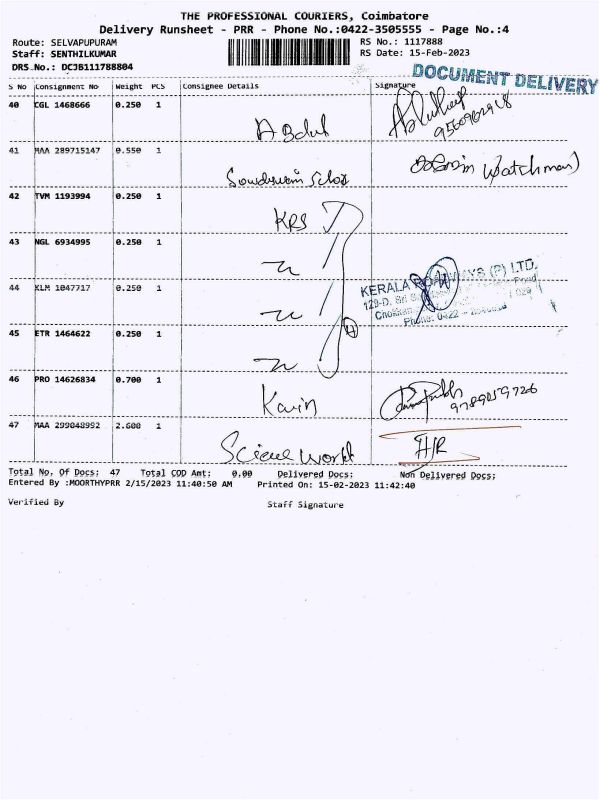 THE PROFESSIONAL COURIERS, Coimbatore
Delivery Runsheet - PRR - Phone No.:0422-3505555 - Page No.:4
Route: SELVAPUPURAM
RS No.: 1117888
Staff: SENTHILKUMAR
RS Date: 15-Feb-2023
DRS No.: DCJB111788804
DOCUMENT DELIVERY
S No Consignment No Weight PCS Consignee Details Signature
40 CGL 1468666 0.250 1
Abdul
41 MAA 289715147 0.550 1
(Watchman)
42 TVM 1193994 0.250 1
KRS
43 NGL 6934995 0.250 1
KERALA ROADWAYS (P) LTD.
44 KLM 1047717 0.250 1
129-D, Sri
Phone: 0422 -
45 ETR 1464622 0.250 1
46 PRO 14626834 0.700 1
Kavin
9789059726
47 MAA 299048992 2.600 1
Science World
Total No. Of Docs: 47 Total COD Amt: 0.00 Delivered Docs: Non Delivered Docs:
Entered By :MOORTHYPRR 2/15/2023 11:40:50 AM Printed On: 15-02-2023 11:42:40
Verified By Staff Signature